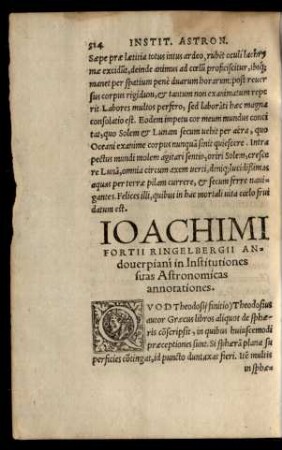 514 INSTIT. ASTRON.
Sæpe præ lætitia totus intus ardeo, rubēt oculi lachry
mæ excidūt, deinde animus ad cœlū proficiscitur, ibiq;
manet per spatium penè duarum horarum: post reuer
sus corpus rigidum, & tantum non exanimatum repe
rit. Labores multos perfero, sed laborāti hæc magna
consolatio est. Eodem impetu cor meum mundus conci
tat, quo Solem & Lunam secum uehit per aëra, quo
Oceani exanime corpus nunquā sinit quiescere. Intra
pectus mundi molem agitari sentio, oriri Solem, cresce
re Lunā, omnia circum axem uerti, deniq; lucidissimas
aquas per terrā pilam currere, & secum ferre naui
gantes. Felices illi, quibus in hac mortali uita cælo frui
datum est.
IOACHIMI
FORTII RINGELBERGII AN-
douerpiani in Institutiones
suas Astronomicas
annotationes.
QVOD Theodosij finitio) Theodosius
autor Græcus libros aliquot de sphæ
ris cōscripsit, in quibus huiuscemodi
præceptiones sunt. Si sphærā plana su
perficies cōtingat, id puncto duntaxat fieri. Itē multis
in sphæ-